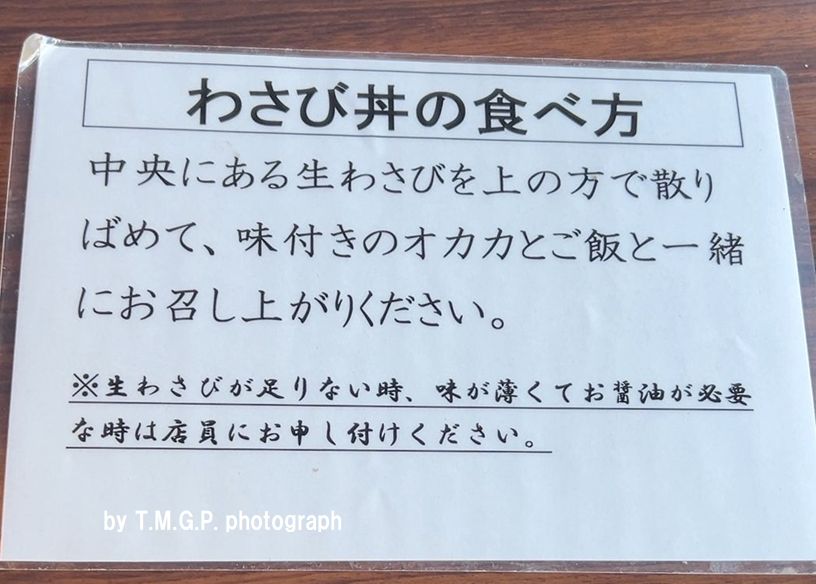 わさび丼の食べ方
中央にある生わさびを上の方で散り
ばめて、味付きのオカカとご飯と一緒
にお召し上がりください。
※生わさびが足りない時、味が薄くてお醤油が必要
な時は店員にお申し付けください。
by T.M.G.P. photograph